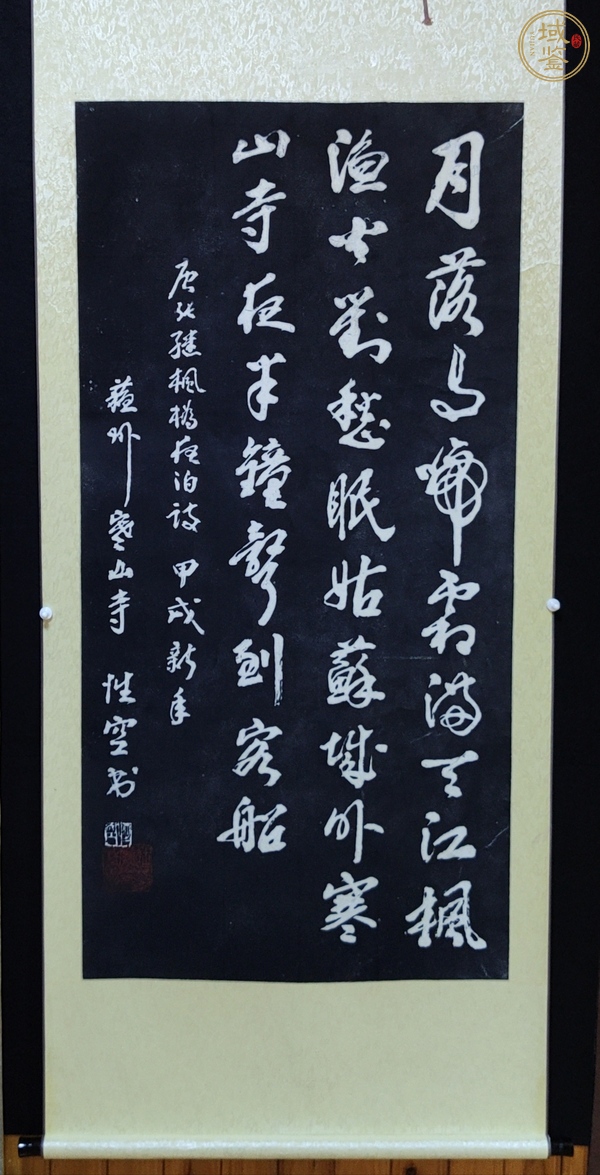 月落烏啼霜满天江楓
漁火對愁眠姑蘇城外寒
山寺夜半鐘聲到客船
唐张继楓橋夜泊詩 甲戌新年
蘇州寒山寺 性空书
域鉴